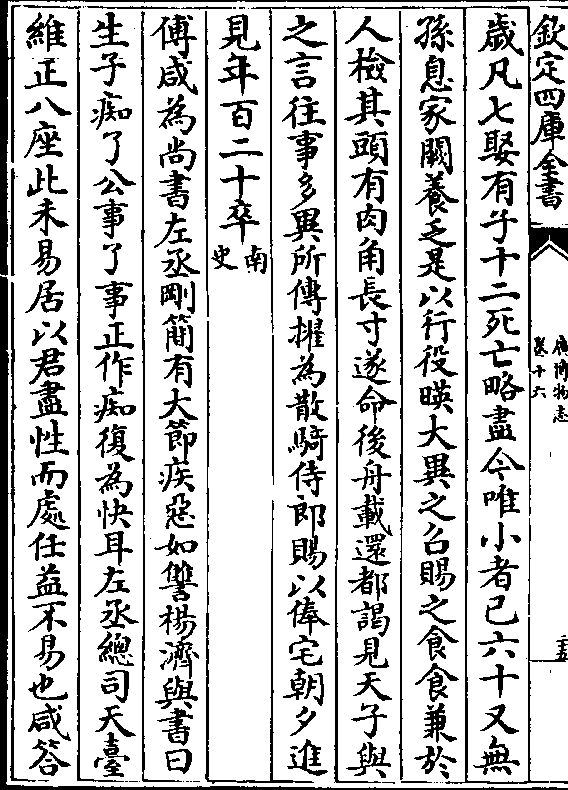 欽定四庫全書
廣博物志
卷十六
二十五
歲凡七娶有子十二死亡略盡今唯小者已六十又無
孫息家闕養乏是以行役暎大異之召賜之食食兼於
人檢其頭有肉角長寸遂命後舟載還都謁見天子與
之言往事多異所傳擢為散騎侍郎賜以俸宅朝夕進
見年百二十卒南史
傅咸為尚書左丞剛簡有大節疾惡如讐楊濟與書曰
生子痴了公事了事正作痴復為快耳左丞總司天臺
維正八座此未易居以君盡性而處任益不易也咸答